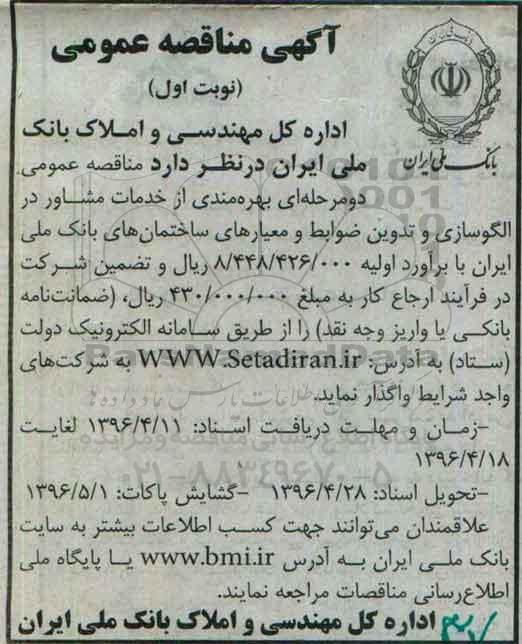 آگهی مناقصه عمومی
(نوبت اول)
بانک ملی ایران
اداره کل مهندسی و املاک بانک
ملی ایران درنظر دارد مناقصه عمومی
دومرحله‌ای بهره‌مندی از خدمات مشاور در
الگوسازی و تدوین ضوابط و معیارهای ساختمان‌های بانک ملی
ایران با برآورد اولیه ۸/۴۴۸/۴۲۶/۰۰۰ ریال و تضمین شرکت
در فرآیند ارجاع کار به مبلغ ۴۳۰/۰۰۰/۰۰۰ ریال، (ضمانت‌نامه
بانکی یا واریز وجه نقد) را از طریق سامانه الکترونیک دولت
(ستاد) به آدرس: WWW.Setadiran.ir به شرکت‌های
واجد شرایط واگذار نماید.
-زمان و مهلت دریافت اسناد: ۱۳۹۶/۴/۱۱ لغایت
۱۳۹۶/۴/۱۸
-تحویل اسناد: ۱۳۹۶/۴/۲۸ -گشایش پاکات: ۱۳۹۶/۵/۱
علاقمندان می‌توانند جهت کسب اطلاعات بیشتر به سایت
بانک ملی ایران به آدرس www.bmi.ir یا پایگاه ملی
اطلاع‌رسانی مناقصات مراجعه نمایند.
اداره کل مهندسی و املاک بانک ملی ایران
۰۲۱-۸۸۳۴۹۶۷۰-۵